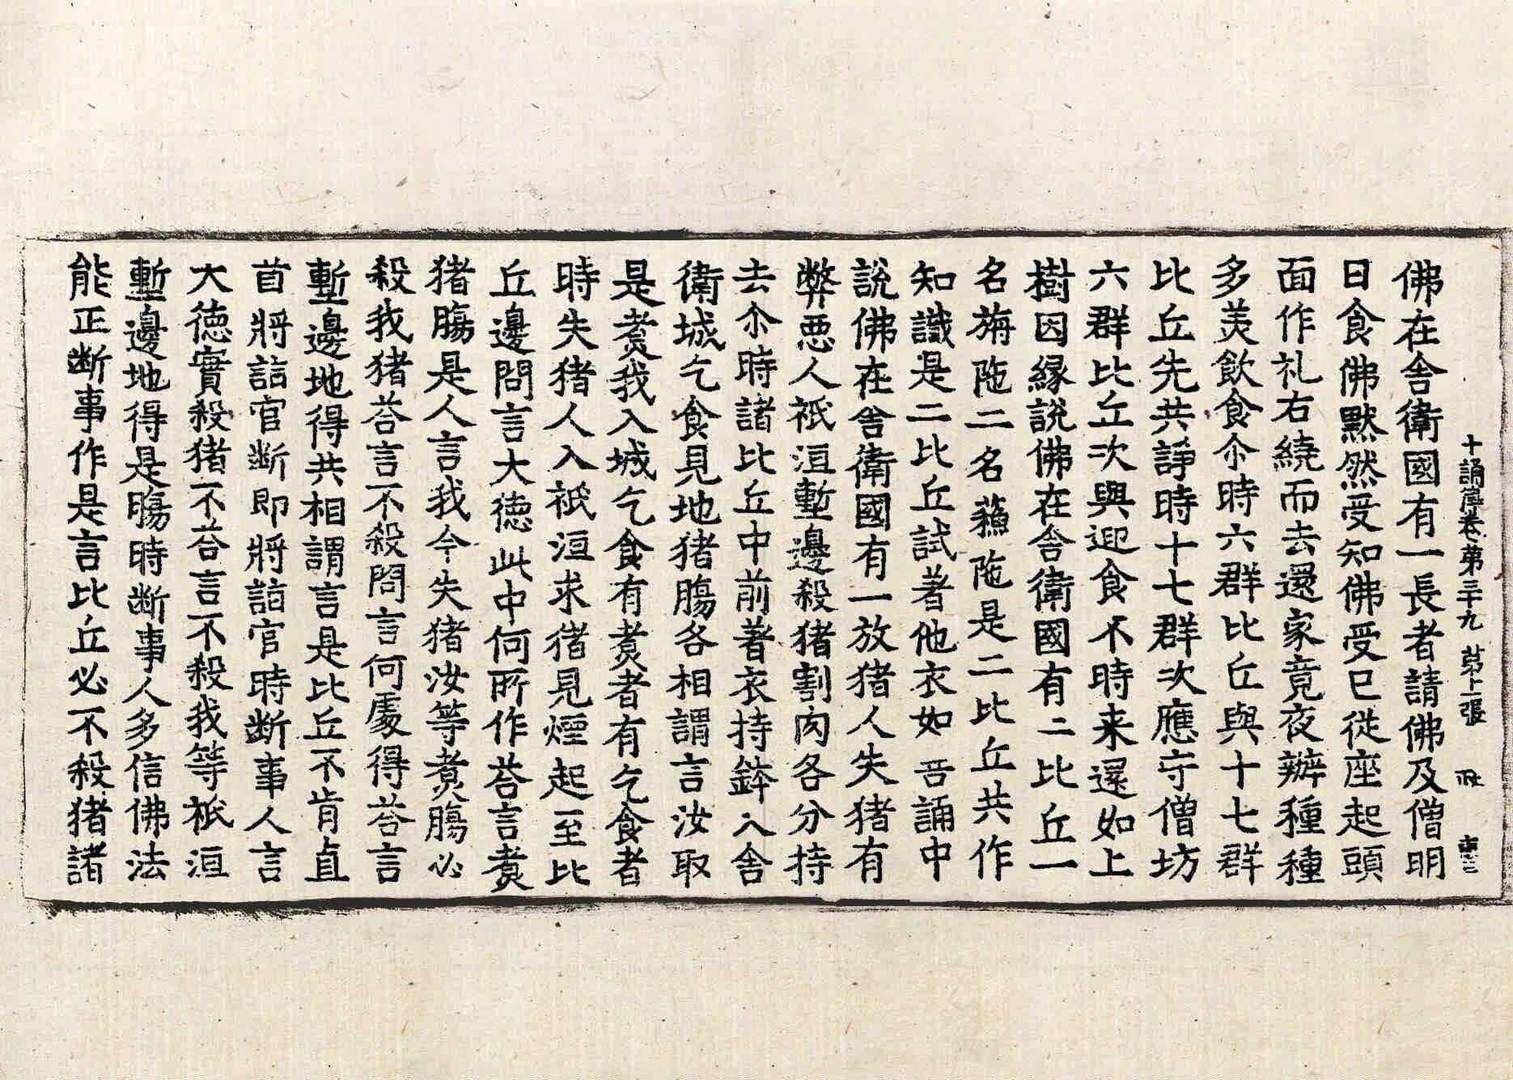 十誦律卷第三十九 第十張 隨
佛在舍衛國有一長者請佛及僧明
日食佛默然受知佛受已従座起頭
面作礼右繞而去還家竟夜辦種種
多美飲食尒時六群比丘與十七群
比丘先共諍時十七群次應守僧坊
六群比丘次與迎食不時来還如上
樹因縁説佛在舍衛國有二比丘一
名旃陁二名蘓陁是二比丘共作
知識是二比丘試著他衣如 吾誦中
説佛在舍衛國有一放猪人失猪有
弊惡人祇洹塹邊殺猪割肉各分持
去尒時諸比丘中前著衣持鉢入舍
衛城乞食見地猪腸各相謂言汝取
是煑我入城乞食有煑者有乞食者
時失猪人入祇洹求猪見煙起至比
丘邊問言大德此中何所作荅言煑
猪腸是人言我今失猪汝等煑腸必
殺我猪荅言不殺問言何處得荅言
塹邊地得共相謂言是比丘不肯直
首將詣官断即將詣官時断事人言
大德實殺猪不荅言不殺我等祇洹
塹邊地得是腸時断事人多信佛法
能正断事作是言比丘必不殺猪諸